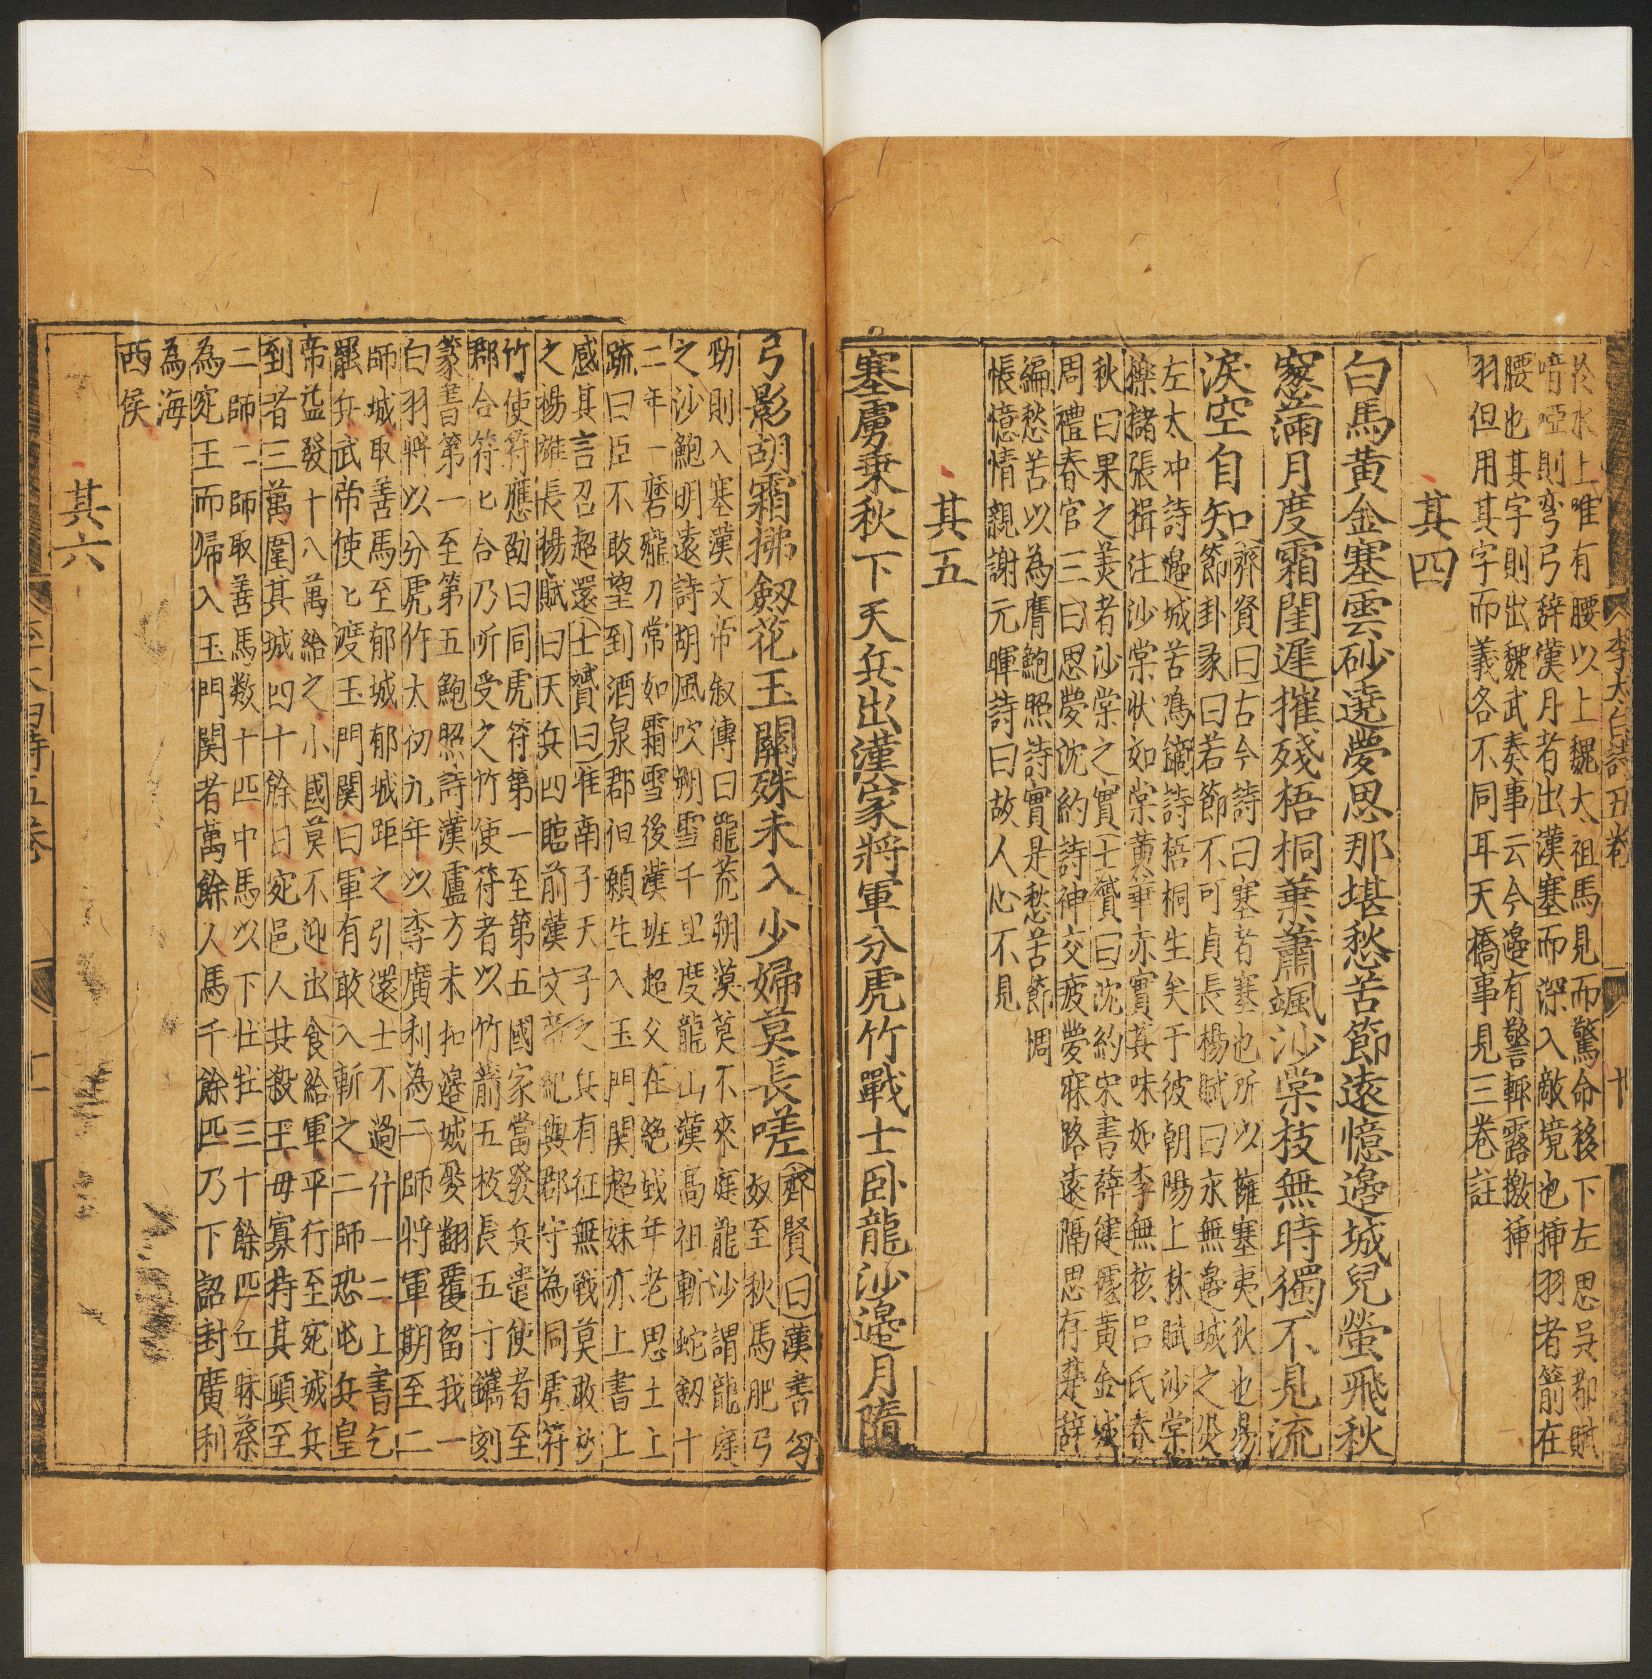 於水上唯有腰以上魏太祖馬見而驚命移下左思吳都賦
喑啞則彎弓辭漢月者出漢塞而深入敵境也揷羽者箭在
腰也其字則出魏武奏事云今邊有警輒露檄揷
羽但用其字而義各不同耳天橋事見三卷註
其四
白馬黃金塞雲砂遶夢思那堪愁苦節遠憶邊城兒螢飛秋
窻滿月度霜閨遲摧殘梧桐葉蕭颯沙棠枝無時獨不見流
淚空自知
齊賢曰古今詩曰塞者塞也所以擁塞夷狄也易
節卦彖曰若節不可貞長楊賦曰永無邊城之災
左太冲詩邊城苦鳴鏑詩梧桐生矣于彼朝陽上林賦沙棠
櫟櫧張揖注沙棠狀如棠黃華赤實其味如李無核呂氏春
秋曰果之美者沙棠之實士贇曰沈約宋書薛建懷黃金
周禮春官三曰思夢沈約詩神交疲夢寐路遠隔思存楚辭
編愁苦以為膺鮑照詩實是愁苦節惆
悵憶情親謝元暉詩曰故人心不見
其五
塞虜乘秋下天兵出漢家將軍分虎竹戰士臥龍沙邊月隨
李太白詩五卷 十
弓影胡霜拂劔花玉關殊未入少婦莫長嗟
齊賢曰漢書匈
奴至秋馬肥弓
勁則入塞漢文帝叙傳曰龍荒朔漠莫不來庭龍沙謂龍庭
之沙鮑明遠詩胡風吹朔雪千里度龍山漢高祖斬蛇劔十
二年一磨瑩刀常如霜雪後漢班超父在絶域年老思土上
踈曰臣不敢望到酒泉郡但願生入玉門關超妹亦上書上
感其言召超還士贇曰淮南子天子之兵有征無戰莫敢挍
之楊雄長揚賦曰天兵四臨前漢文帝紀與郡守為同虎符
竹使符應劭曰同虎符第一至第五國家當發兵遣使者至
郡合符匕合乃所受之竹使符者以竹箭五枚長五寸鐫刻
篆書第一至第五鮑照詩漢虜方未和邊城娶翻覆留我一
白羽將以分虎竹太初九年以李廣利為二師將軍期至二
師城取善馬至郁城郁城距之引還士不過什一二上書乞
罷兵武帝使匕度玉門關曰軍有敢入斬之二師恐屯兵皇
帝益發十八萬給之小國莫不迎出食給軍平行至宛城兵
到者三萬圍其城四十餘日宛邑人共殺王毋寡持其頭至
二師二師取善馬数十匹中馬以下牡牡三十餘匹立昧蔡
為宛王而㷌入玉門関者萬餘人馬千餘匹乃下詔封廣利
為海
西侯
其六